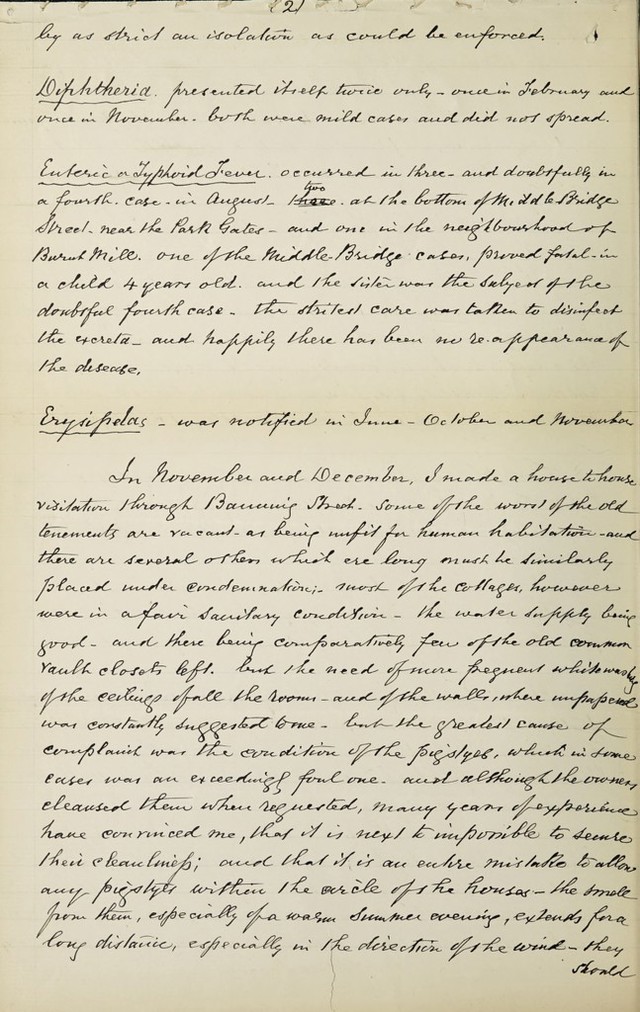 (2)
by as strict an isolation as could be enforced.
Diphtheria. presented itself twice only - once in February and
once in November. both were mild cases and did not spread.
Enteric or Typhoid Fever. occurred in three - and doubtfully in
two
a fourth. case - in August - at the bottom of Middle Bridge
Street - near the Park Gates - and one in the neighbourhood of
Burnt Mill. one of the Middle-Bridge cases, proved fatal - in
a child 4 years old. and the sister was the subject of the
doubtful fourth case - the strictest care was taken to disinfect
the excreta - and happily there has been no re-appearance of
the disease.
Erysipelas - was notified in June - October and November
In November and December, I made a house to house
visitation through Banning Street - some of the worst of the old
tenements are vacant - as being unfit for human habitation - and
there are several others which ere long must be similarly
placed under condemnation; - most of the cottages, however
were in a fair sanitary condition - the water supply being
good - and there being comparatively few of the old common
vault closets left. but the need of more frequent whitewashing
of the ceilings of all the rooms - and of the walls, where unpapered
was constantly suggested to me - but the greatest cause of
complaint was the condition of the pigstyes, which in some
cases was an exceedingly foul one - and although the owners
cleansed them when requested, many years of experience
have convinced me, that it is next to impossible to secure
their cleanliness; and that it is an entire mistake to allow
any pigstyes within the circle of the houses - the smell
from them, especially of a warm summer evening, extends for a
long distance, especially in the direction of the wind - they
should